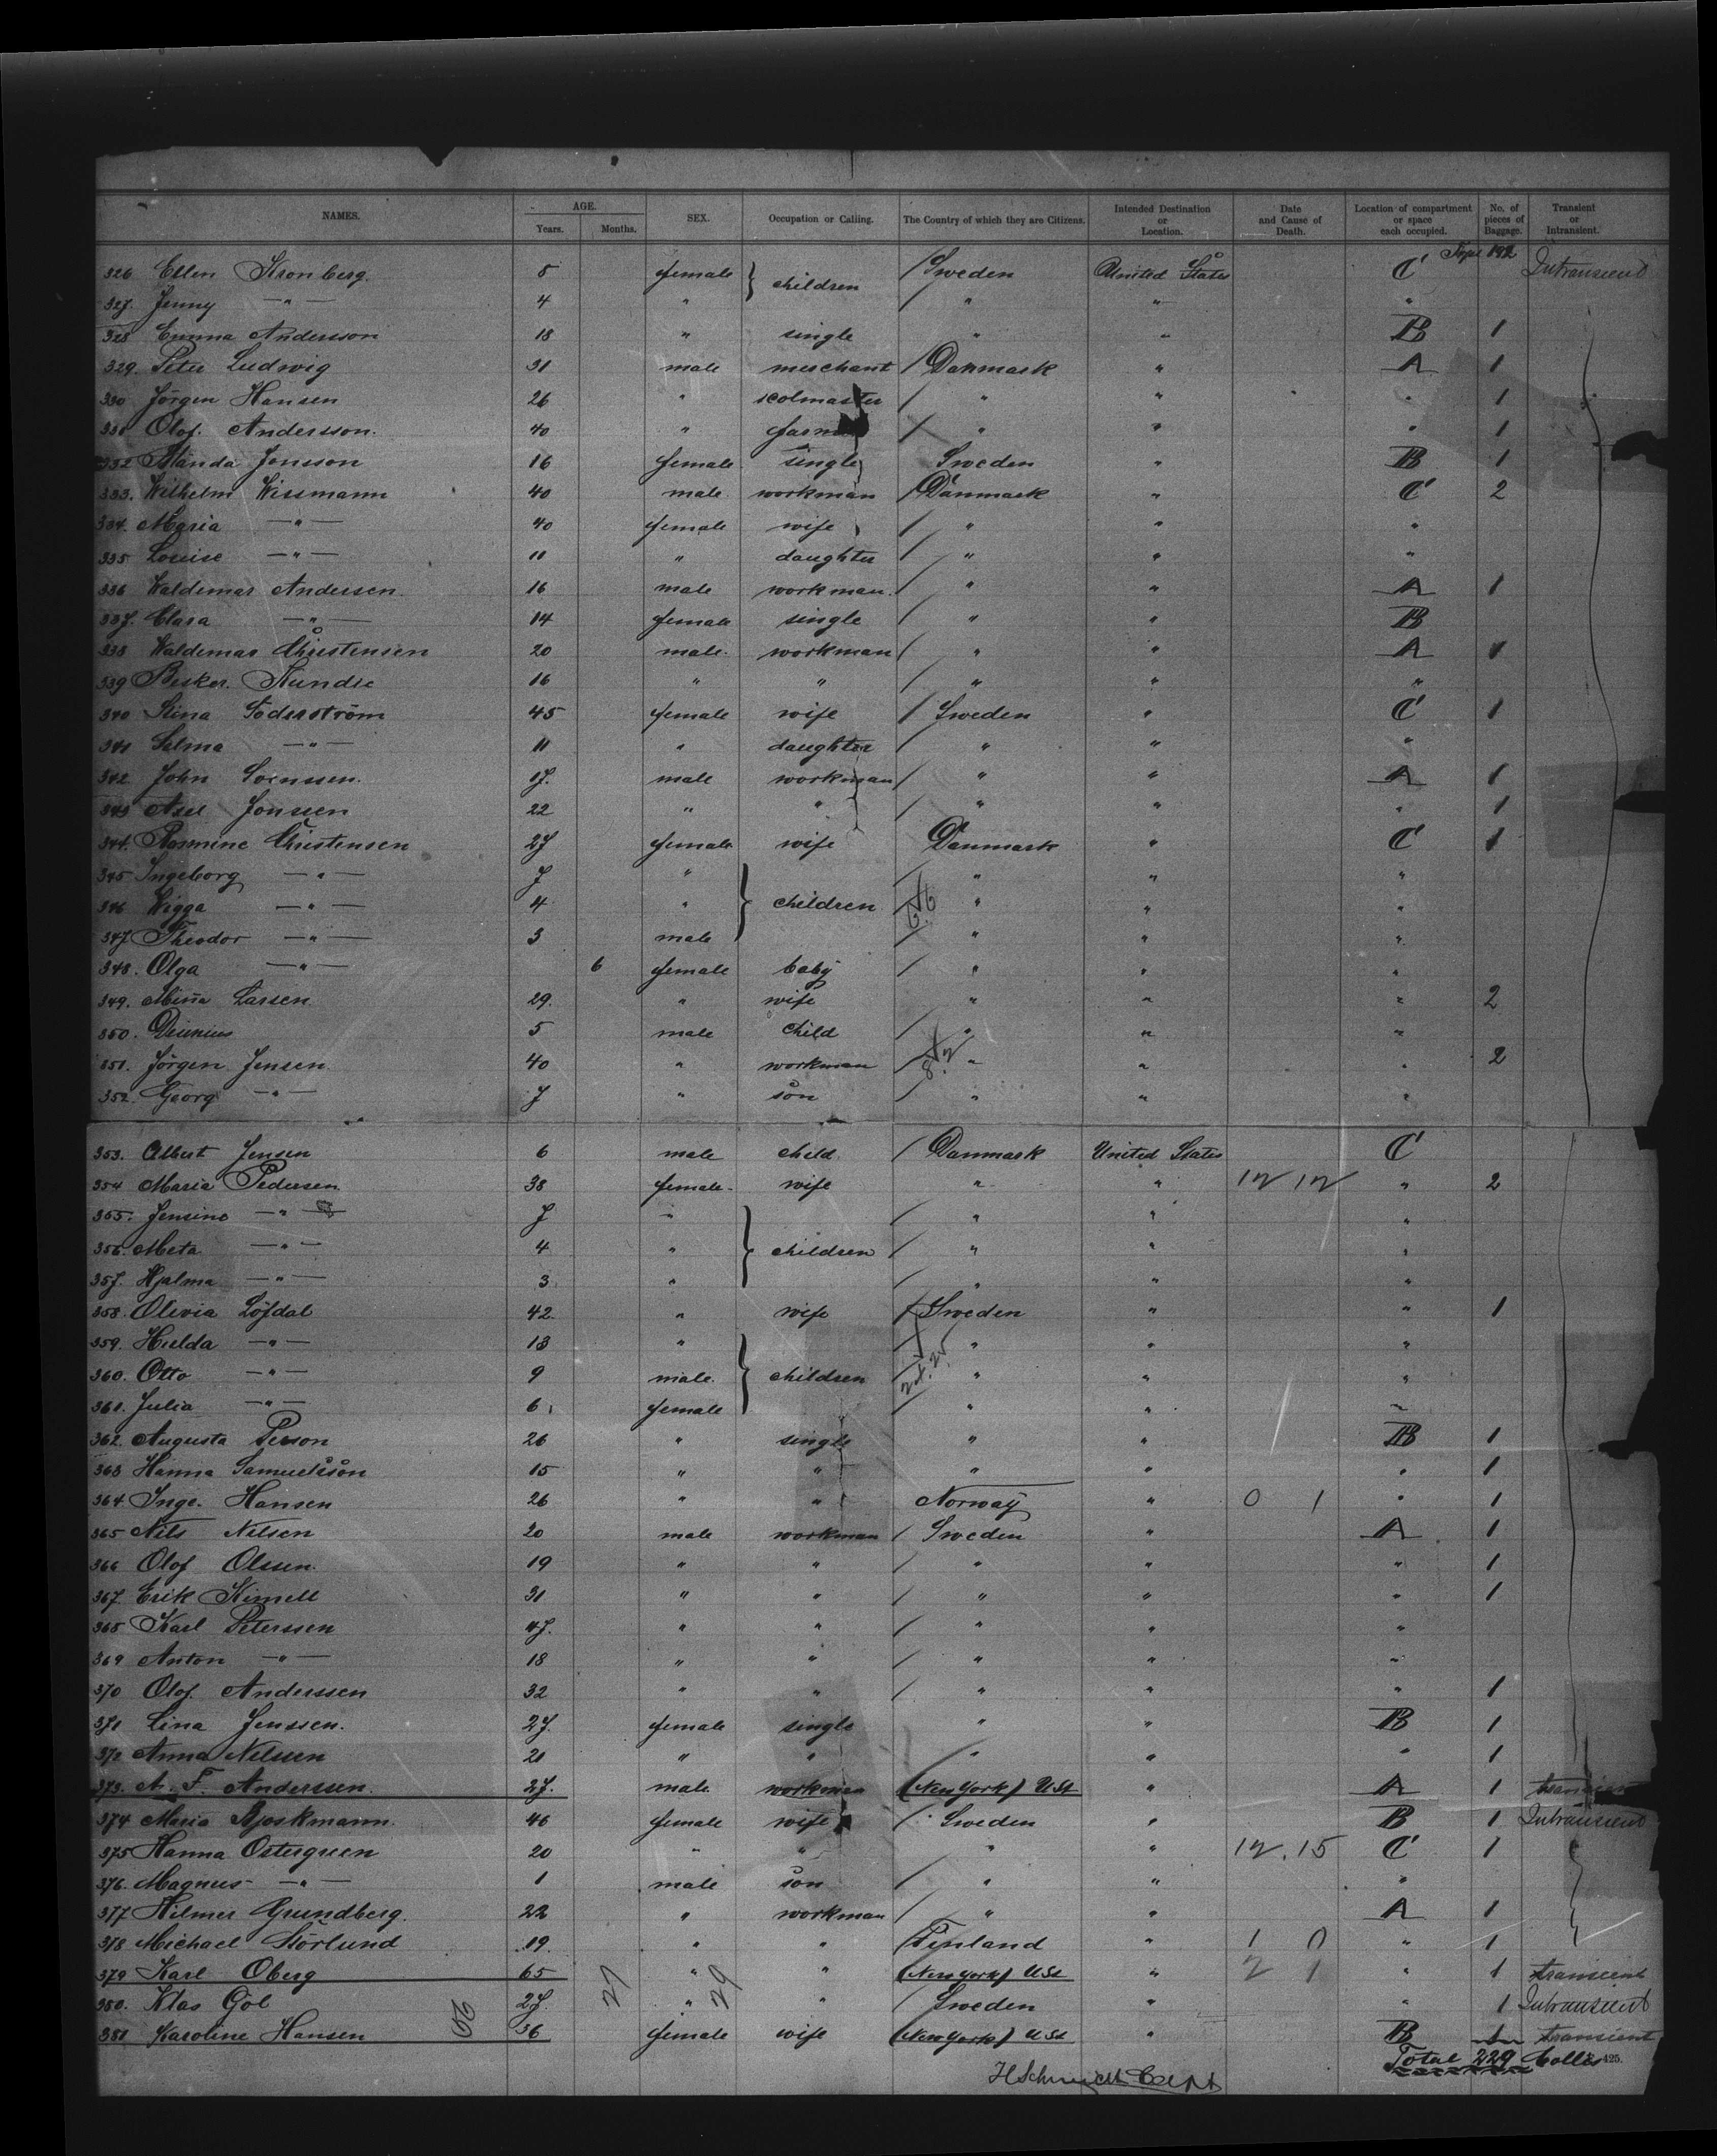 NAMES. AGE. SEX. Occupation or Calling. The Country of which they are Citizens. Intended Destination or Location. Date and Cause of Death. Location of compartment or space each occupied. No. of pieces of Baggage. Transient or Intransient.
Years. Months.
192
326. Ellen Kronberg. 8 female } children / Sweden United States C Intransient
327. Jenny —"— 4 " / " " "
328 Emma Andersson 18 " single " " B 1
329. Peter Ludwig 31 male merchant / Danmark " A 1
330 Jörgen Hansen 26 " scolmaster / " " " 1
331 Olof. Andersson. 40 " / " " " 1
332 Jonsson 16 female single Sweden " B 1
333. Wilhelm Wissmann 40 male workman / Danmark " C 2
334. Maria —"— 40 female wife / " " "
335 Louise —"— 11 " daughter / " " "
336 Waldemar Andersen 16 male workman. / " " A 1
337. Clara —"— 14 female single / " " B
338 Waldemar Christensen 20 male. workman / " " A 1
339 16 " " / " " "
340 Stina Söderström 45 female wife / Sweden " C 1
341 Selma —"— 11 " daughter / " " "
342. John 17. male workman / " " A 1
343 Axel Jonssen 22 " " / " " " 1
344. Rasmine Christensen 27 female wife Danmark " C 1
345 Ingeborg —"— 7 " } children / " " "
346 Wigga —"— 4 " / " " "
347 Theodor —"— 3 male / " " "
348. Olga —"— 6 female baby / " " "
349. Mina Larsen 29. " wife " " " 2
350. 5 male child / " " "
351. Jörgen Jensen 40 " workman / " " " 2
352. Georg —"— 7 " son / " " "
353. Albert Jensen 6 male child / Danmark United States C
354 Maria Pedersen 38 female wife " " 12 12 " 2
355. Jensine —"— 7 " } children / " " "
356. Meta —"— 4 " / " " "
357. Hjalma —"— 3 " / " " "
358. Olivia Löfdal 42. " wife / Sweden " " 1
359. Hulda —"— 13 " } children / " " "
360. Otto —"— 9 male. / " " "
361. Julia —"— 6 female " " "
362. Augusta Person 26 " single " " B 1
363 Hanna Samuelsson 15 " " " " " 1
364 Inge. Hansen 26 " " Norway " 0 1 " 1
365 Nils Nilsen 20 male workman / Sweden " A 1
366 Olof Olssen. 19 " " / " " " 1
367. Erik 31 " " / " " " 1
368 Karl Peterssen 47. " " / " " "
369 Anton —"— 18 " " / " " "
370 Olof. Anderssen 32 " " / " " " 1
371 Lina Jenssen. 27. female single " " B 1
372 Anna Nilssen 21 " " " " " 1
373. A. F. Anderssen. 27. male workman (New York) USt " A 1 transient
374 Maria 46 female wife / Sweden " B 1 Intransient
375 Hanna Ostergreen 20 " " " " 12.15 C 1
376. Magnus —"— 1 male son / " " "
377 Hilmer Grundberg. 22 " workman / " " A 1
378 Michael Störlund 19. " " Finland " 1 0 " 1
379 Karl Oberg 65 " " (New York) USt " 2 1 " 1 transient
380. Klas Göl 27. " " / Sweden " " 1 Intransient
381 Karoline Hansen 36 female wife (New York) USt " B 1 transient
56 27 29
Total 229 Collis 425.
H Schmidt Capt